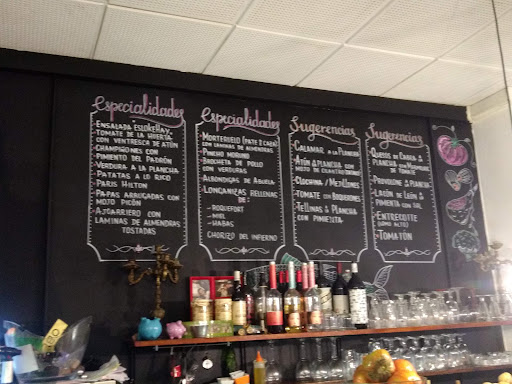 Especialidades
- Ensalada Esloкеhay
Tomate de la huerta
con ventresca de atún
- Champiñones con
pimiento del padrón
- Verdura a la plancha
- Patatas a lo rico
- Paris Hilton
- Papas arrugadas con
mojo picón
- Ajoarriero con
laminas de almendras
tostadas
Especialidades
- Morteruelo (pate d caza)
con laminas de almendras
- Pincho moruno
- Brocheta de pollo
con verduras
- Albondigas de abuela
- Longanizas rellenas
de:
- Roquefort
- Miel
- Habas
Chorizo del infierno
Sugerencias
- Calamar a la plancha
- Atún a la plancha con
mojo de cilantro
- Clochina / Mejillones
- Tomate con boquerones
- Tellinas a la plancha
con pimienta
Sugerencias
- Queso de cabra a la
plancha con mermelada
de tomate
- Provolone a plancha
- Lacón de León a la
pimienta con sal
- Entrecotte
(lomo alto)
- Tomatón